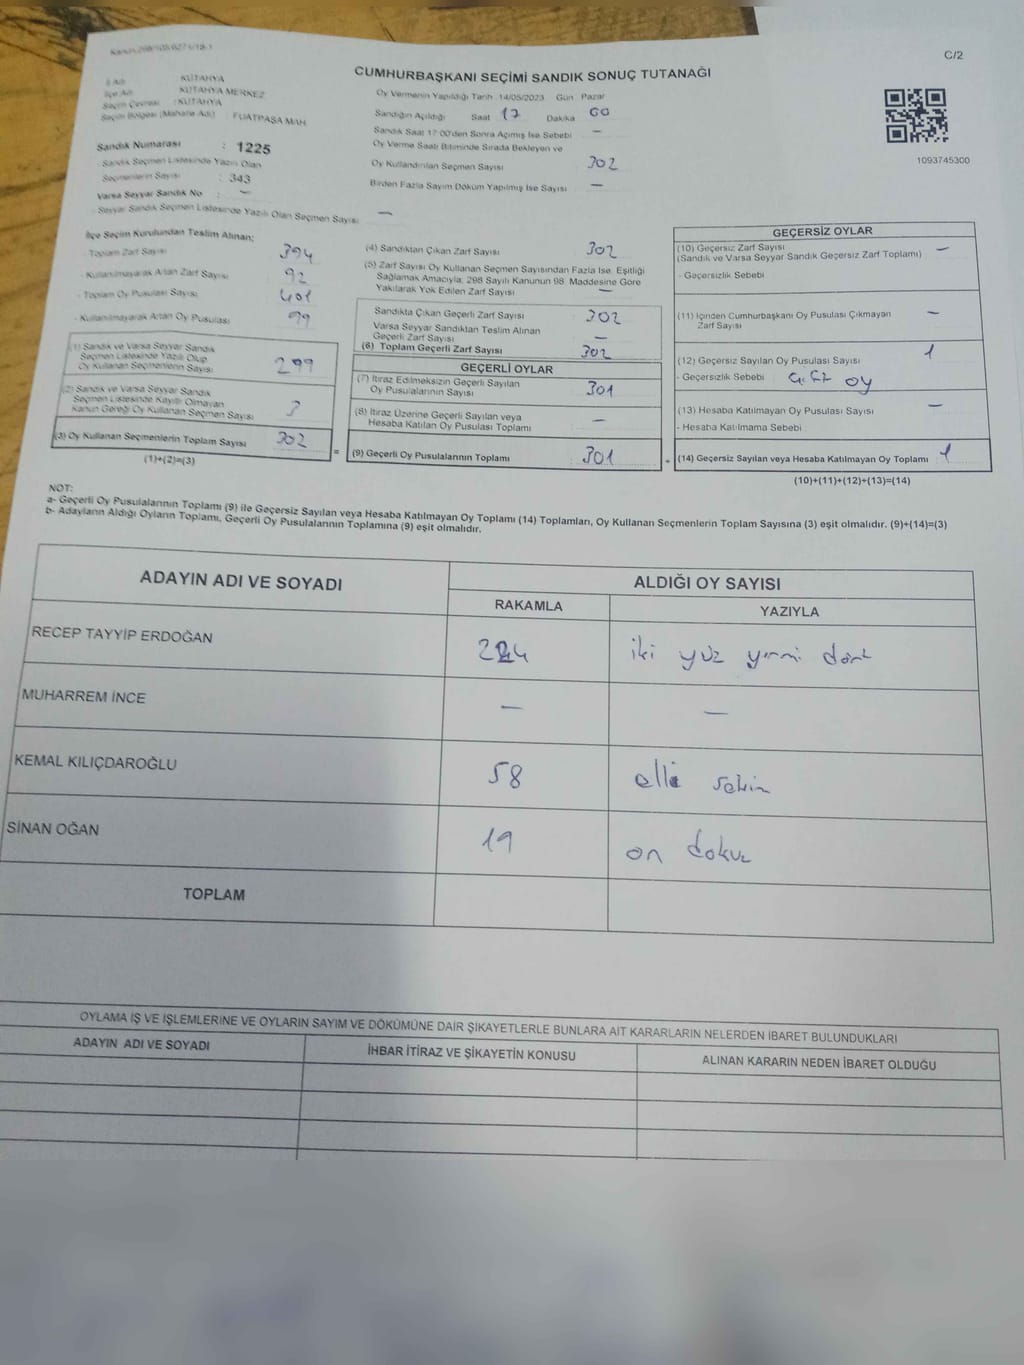 Kanun:298/105/6271/19-1
C/2
CUMHURBAŞKANI SEÇİMİ SANDIK SONUÇ TUTANAĞI
İl Adı : KÜTAHYA
İlçe Adı : KÜTAHYA MERKEZ
Seçim Çevresi : KÜTAHYA
Seçim Bölgesi (Mahalle Adı) : FUATPAŞA MAH
Sandık Numarası : 1225
- Sandık Seçmen Listesinde Yazılı Olan
Seçmenlerin Sayısı : 343
Varsa Seyyar Sandık No : -
- Seyyar Sandık Seçmen Listesinde Yazılı Olan Seçmen Sayısı -
Oy Vermenin Yapıldığı Tarih :14/05/2023 Gün : Pazar
Sandığın Açıldığı Saat 17 Dakika 00
Sandık Saat 17:00'den Sonra Açımış İse Sebebi -
Oy Verme Saati Bitiminde Sırada Bekleyen ve
Oy Kullandırılan Seçmen Sayısı 302
Birden Fazla Sayım Döküm Yapılmış İse Sayısı -
1093745300
İlçe Seçim Kurulundan Teslim Alınan;
- Toplam Zarf Sayısı 394
- Kullanılmayarak Artan Zarf Sayısı 92
- Toplam Oy Pusulası Sayısı 401
- Kullanılmayarak Artan Oy Pusulası 99
(1) Sandık ve Varsa Seyyar Sandık
Seçmen Listesinde Yazılı Olup
Oy Kullanan Seçmenlerin Sayısı 299
(2) Sandık ve Varsa Seyyar Sandık
Seçmen Listesinde Kayıtlı Olmayan
Kanun Gereği Oy Kullanan Seçmen Sayısı 3
(3) Oy Kullanan Seçmenlerin Toplam Sayısı 302
(1)+(2)=(3)
=
(4) Sandıktan Çıkan Zarf Sayısı 302
(5) Zarf Sayısı Oy Kullanan Seçmen Sayısından Fazla İse, Eşitliği
Sağlamak Amacıyla, 298 Sayılı Kanunun 98. Maddesine Göre
Yakılarak Yok Edilen Zarf Sayısı -
Sandıkta Çıkan Geçerli Zarf Sayısı 302
Varsa Seyyar Sandıktan Teslim Alınan
Geçerli Zarf Sayısı -
(6) Toplam Geçerli Zarf Sayısı 302
GEÇERLİ OYLAR
(7) İtiraz Edilmeksizin Geçerli Sayılan
Oy Pusulalarının Sayısı 301
(8) İtiraz Üzerine Geçerli Sayılan veya
Hesaba Katılan Oy Pusulası Toplamı -
(9) Geçerli Oy Pusulalarının Toplamı 301
+
GEÇERSİZ OYLAR
(10) Geçersiz Zarf Sayısı -
(Sandık ve Varsa Seyyar Sandık Geçersiz Zarf Toplamı)
- Geçersizlik Sebebi
(11) İçinden Cumhurbaşkanı Oy Pusulası Çıkmayan -
Zarf Sayısı
(12) Geçersiz Sayılan Oy Pusulası Sayısı 1
- Geçersizlik Sebebi oy
(13) Hesaba Katılmayan Oy Pusulası Sayısı -
- Hesaba Katılmama Sebebi
(14) Geçersiz Sayılan veya Hesaba Katılmayan Oy Toplamı 1
(10)+(11)+(12)+(13)=(14)
NOT:
a- Geçerli Oy Pusulalarının Toplamı (9) ile Geçersiz Sayılan veya Hesaba Katılmayan Oy Toplamı (14) Toplamları, Oy Kullanan Seçmenlerin Toplam Sayısına (3) eşit olmalıdır. (9)+(14)=(3)
b- Adayların Aldığı Oyların Toplamı, Geçerli Oy Pusulalarının Toplamına (9) eşit olmalıdır.
ADAYIN ADI VE SOYADI
ALDIĞI OY SAYISI
RAKAMLA YAZIYLA
RECEP TAYYİP ERDOĞAN 224 iki yüz yirmi dört
MUHARREM İNCE - -
KEMAL KILIÇDAROĞLU 58 elli sekiz
SİNAN OĞAN 19 on dokuz
TOPLAM
OYLAMA İŞ VE İŞLEMLERİNE VE OYLARIN SAYIM VE DÖKÜMÜNE DAİR ŞİKAYETLERLE BUNLARA AİT KARARLARIN NELERDEN İBARET BULUNDUKLARI
ADAYIN ADI VE SOYADI İHBAR İTİRAZ VE ŞİKAYETİN KONUSU ALINAN KARARIN NEDEN İBARET OLDUĞU